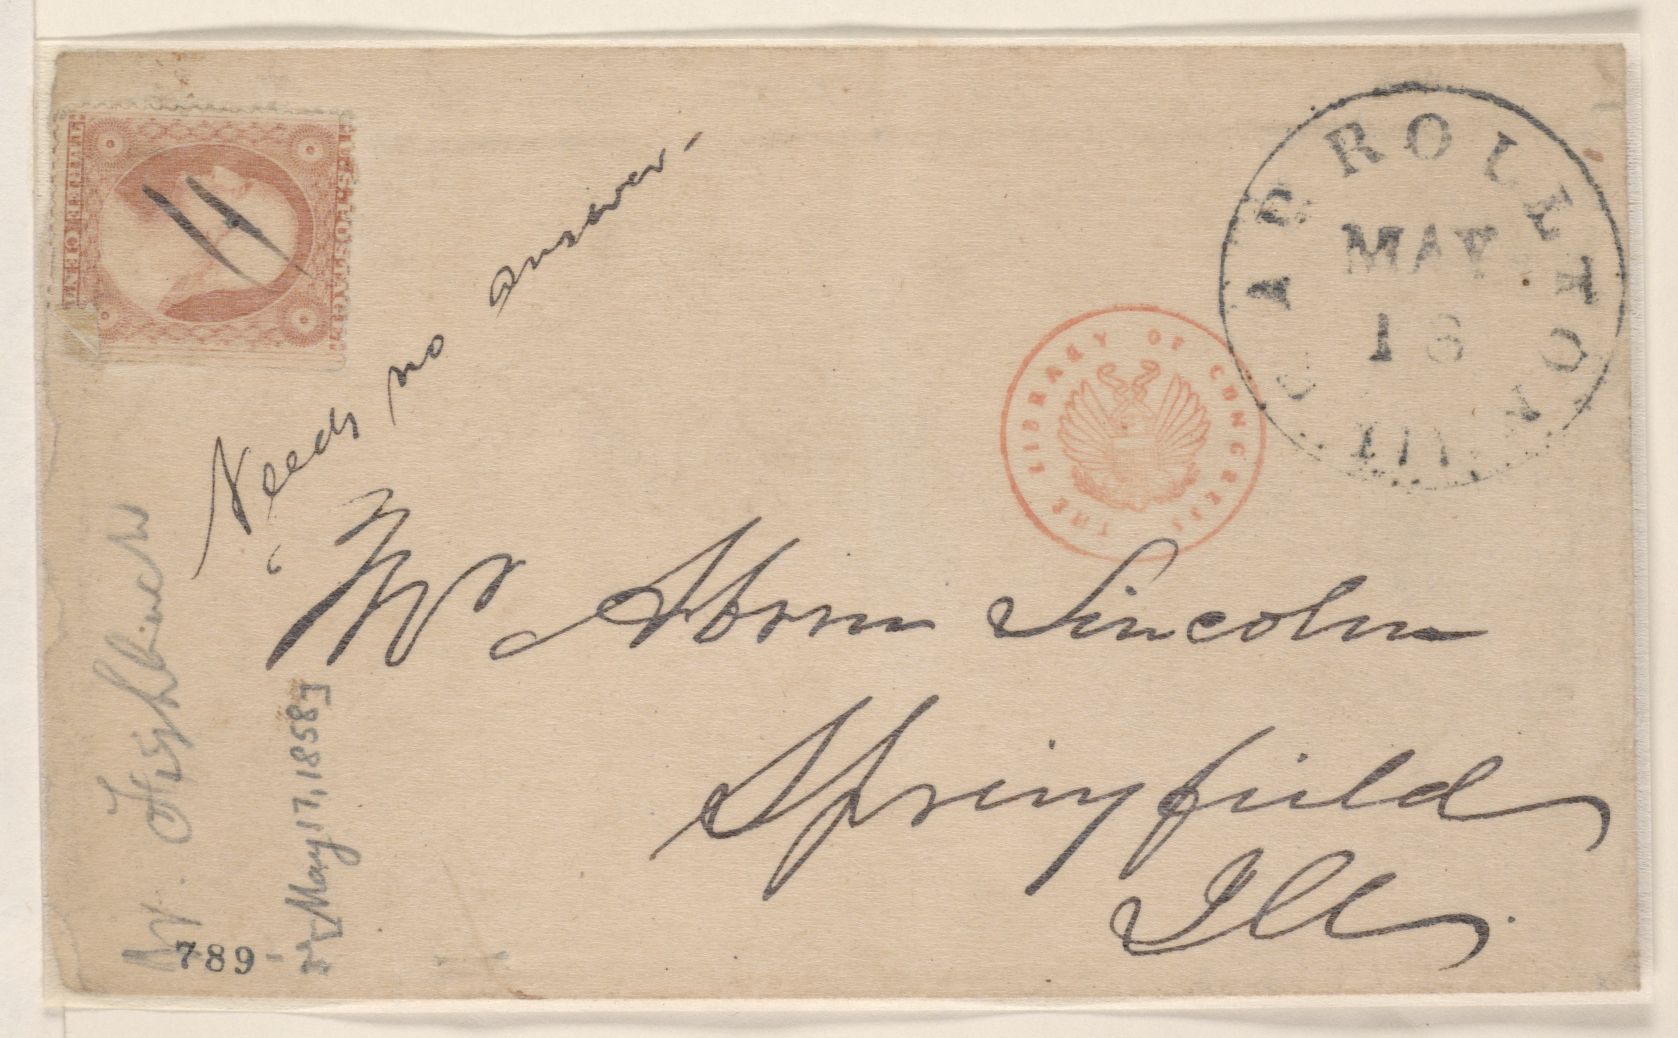 U.S. POSTAGE
THREE CENTS
CARROLLTON
MAY
18
Ill
THE LIBRARY OF CONGRESS
Needs no answer -
Mr Abram Lincoln
Springfield
Ills.
May 17, 1858]
789